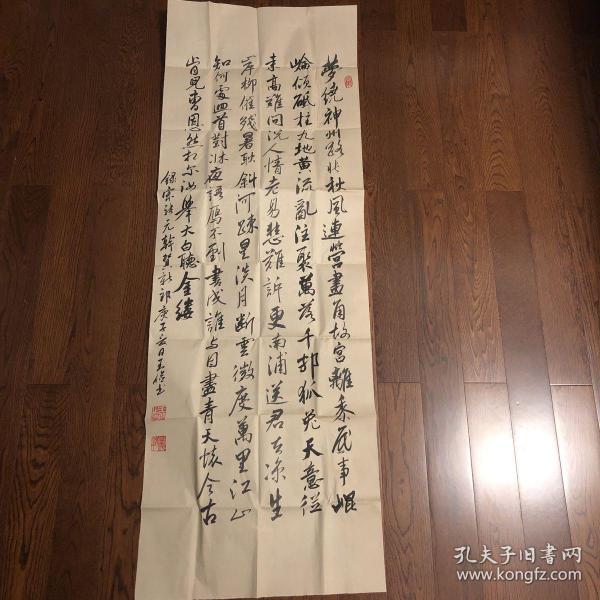 梦绕神州路怅秋风连营画角故宫离黍底事崐
崘倾砥柱九地黄流亂注聚萬落千邨狐兔天意從
来高难问况人情老易悲難訴更南浦送君去涼生
岸柳催残暑耿斜河踈星淡月斷雲微度萬里江山
知何處回首對牀夜語雁不到書成誰与目盡青天懷今古
肯兒曹恩怨相尔汝舉大白聽金縷
錄宋張元幹賀新郎庚子
孔夫子旧书网
www.kongfz.com